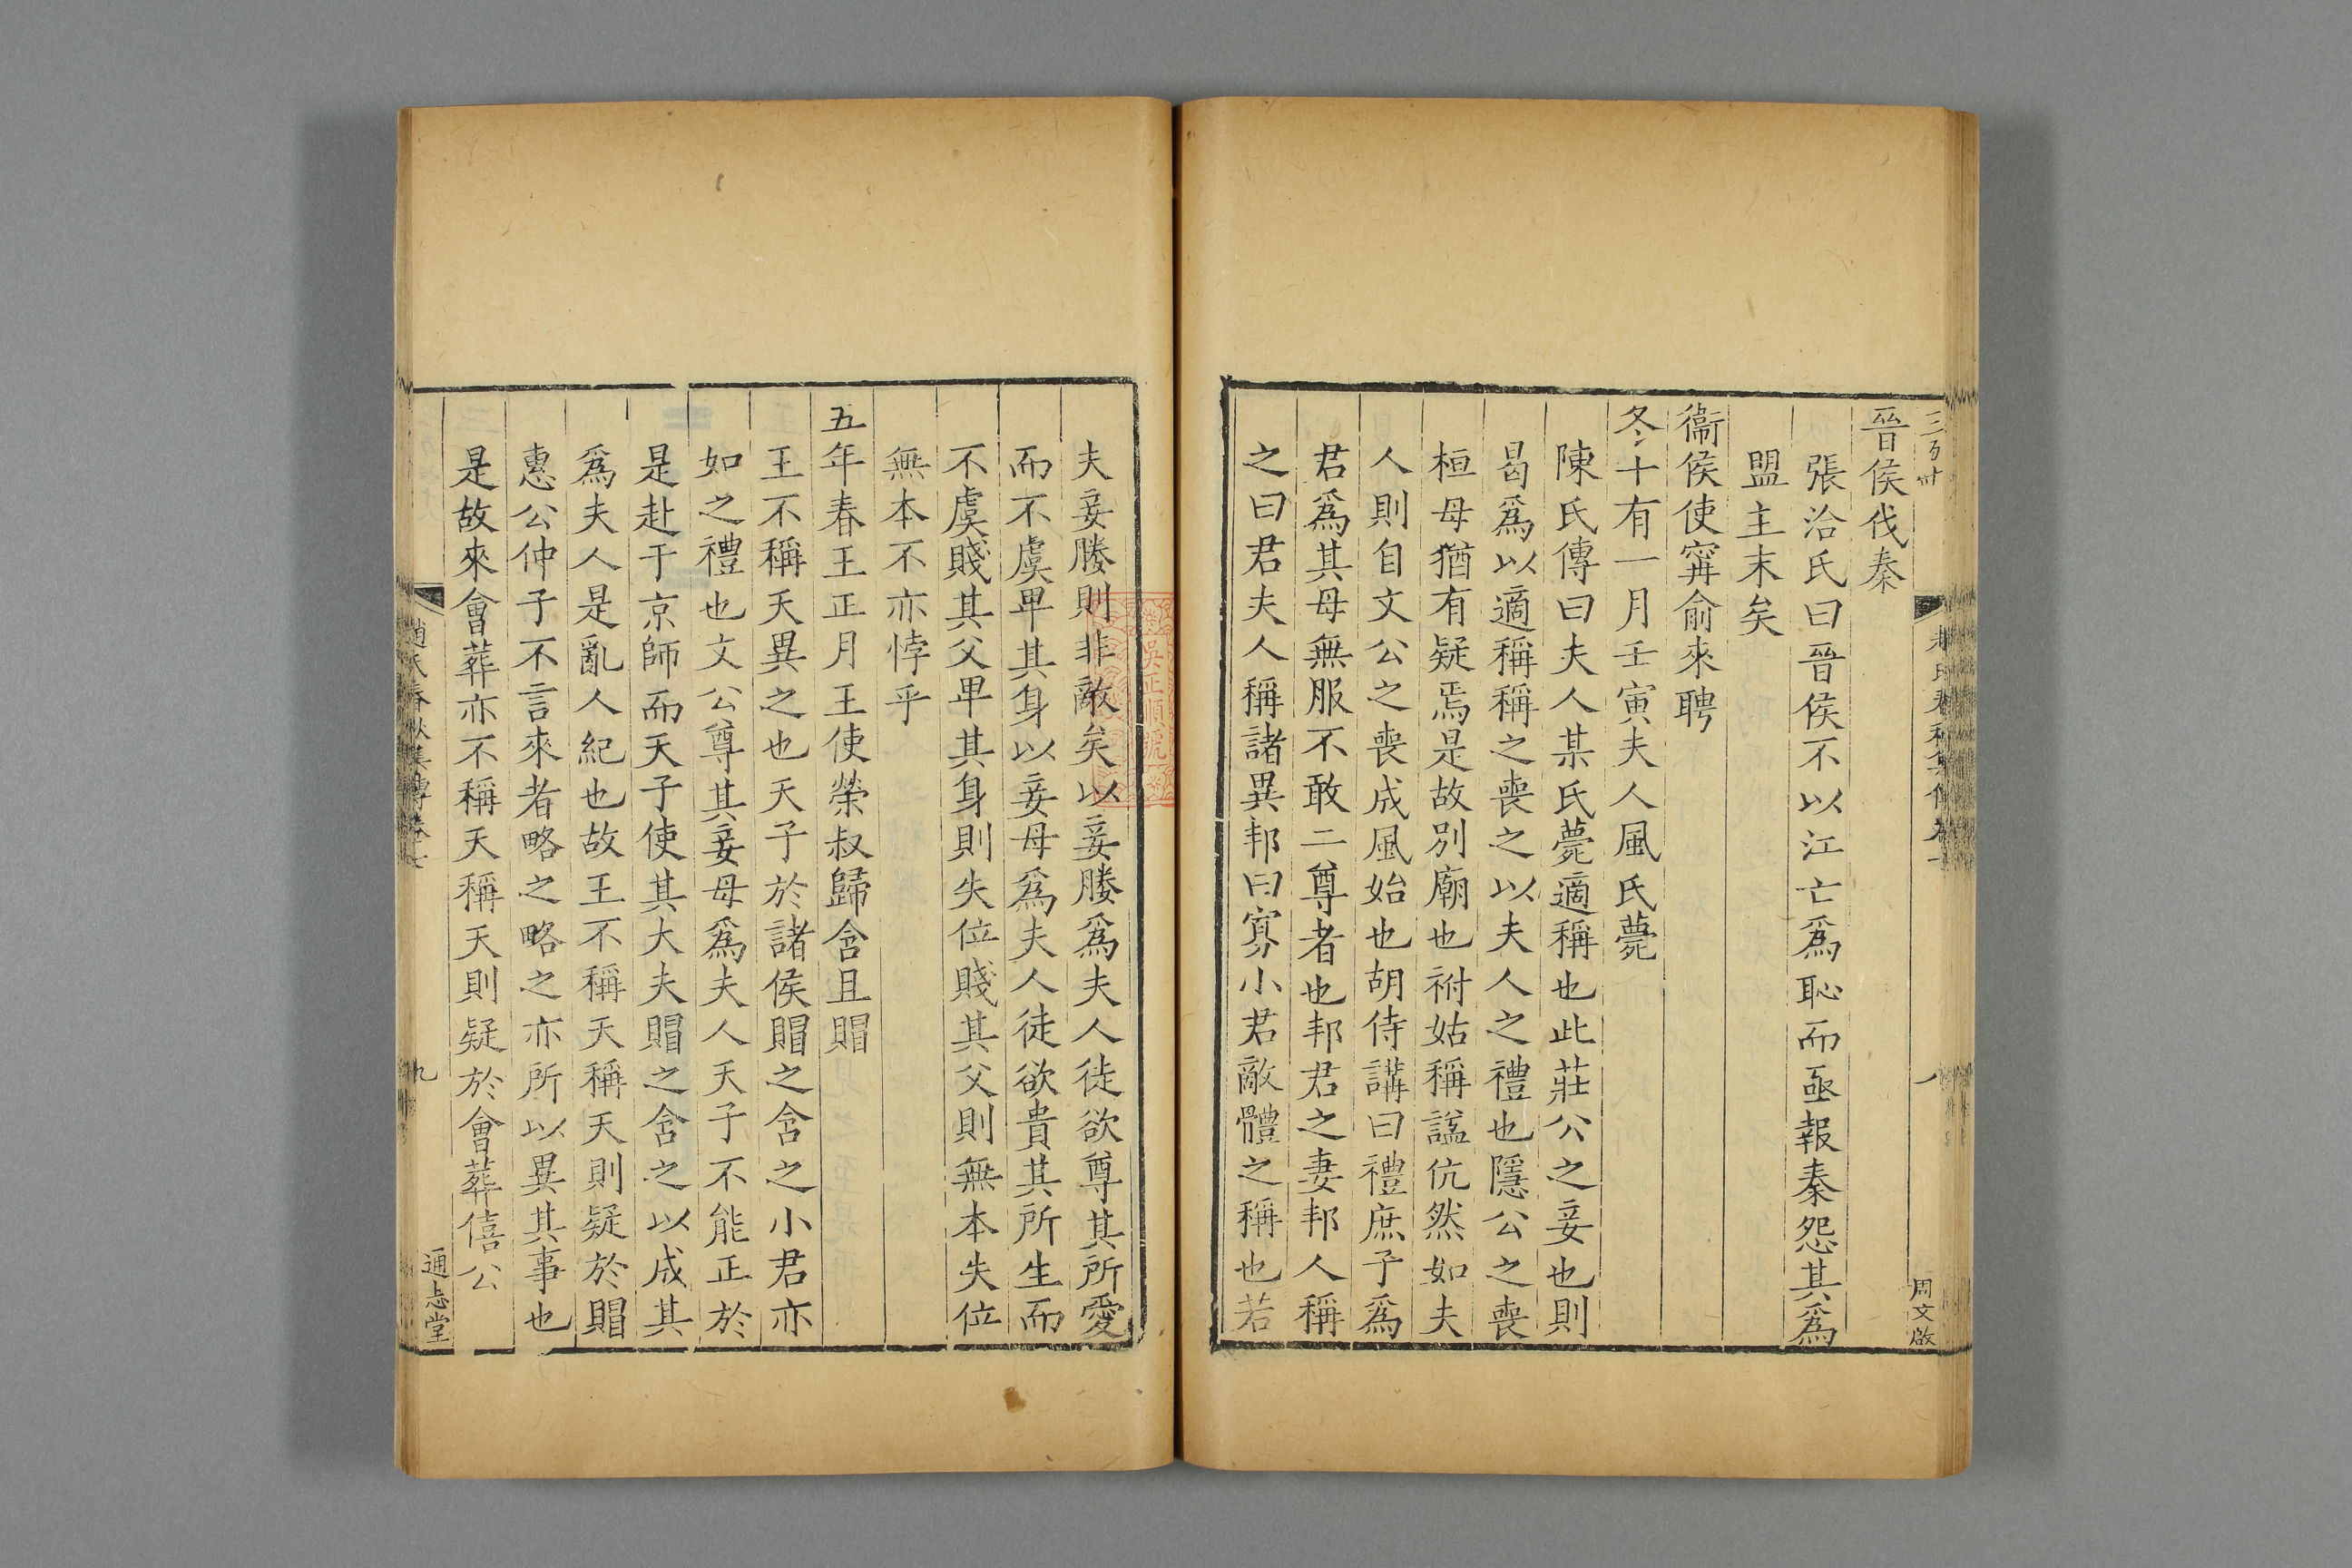 晉侯伐秦
張洽氏曰晉侯不以江亡爲恥而亟報秦怨其爲
盟主末矣
衞侯使甯俞來聘
冬十有一月壬寅夫人風氏薨
陳氏傳曰夫人某氏薨適稱也此莊公之妾也則
曷爲以適稱稱之喪之以夫人之禮也隱公之喪
桓母猶有疑焉是故別廟也祔姑稱諡伉然如夫
人則自文公之喪成風始也胡侍講曰禮庶子爲
君爲其母無服不敢二尊者也邦君之妻邦人稱
之曰君夫人稱諸異邦曰寡小君敵體之稱也若
周文啟
夫妾媵則非敵矣以妾媵爲夫人徒欲尊其所愛
而不虞卑其身以妾母爲夫人徒欲貴其所生而
不虞賤其父卑其身則失位賤其父則無本失位
無本不亦悖乎
五年春王正月王使榮叔歸含且賵
王不稱天異之也天子於諸侯賵之含之小君亦
如之禮也文公尊其妾母爲夫人天子不能正於
是赴于京師而天子使其大夫賵之含之以成其
爲夫人是亂人紀也故王不稱天稱天則疑於賵
惠公仲子不言來者略之略之亦所以異其事也
是故來會葬亦不稱天稱天則疑於會葬僖公
趙氏春秋集傳卷七
九
通志堂
吳正順號